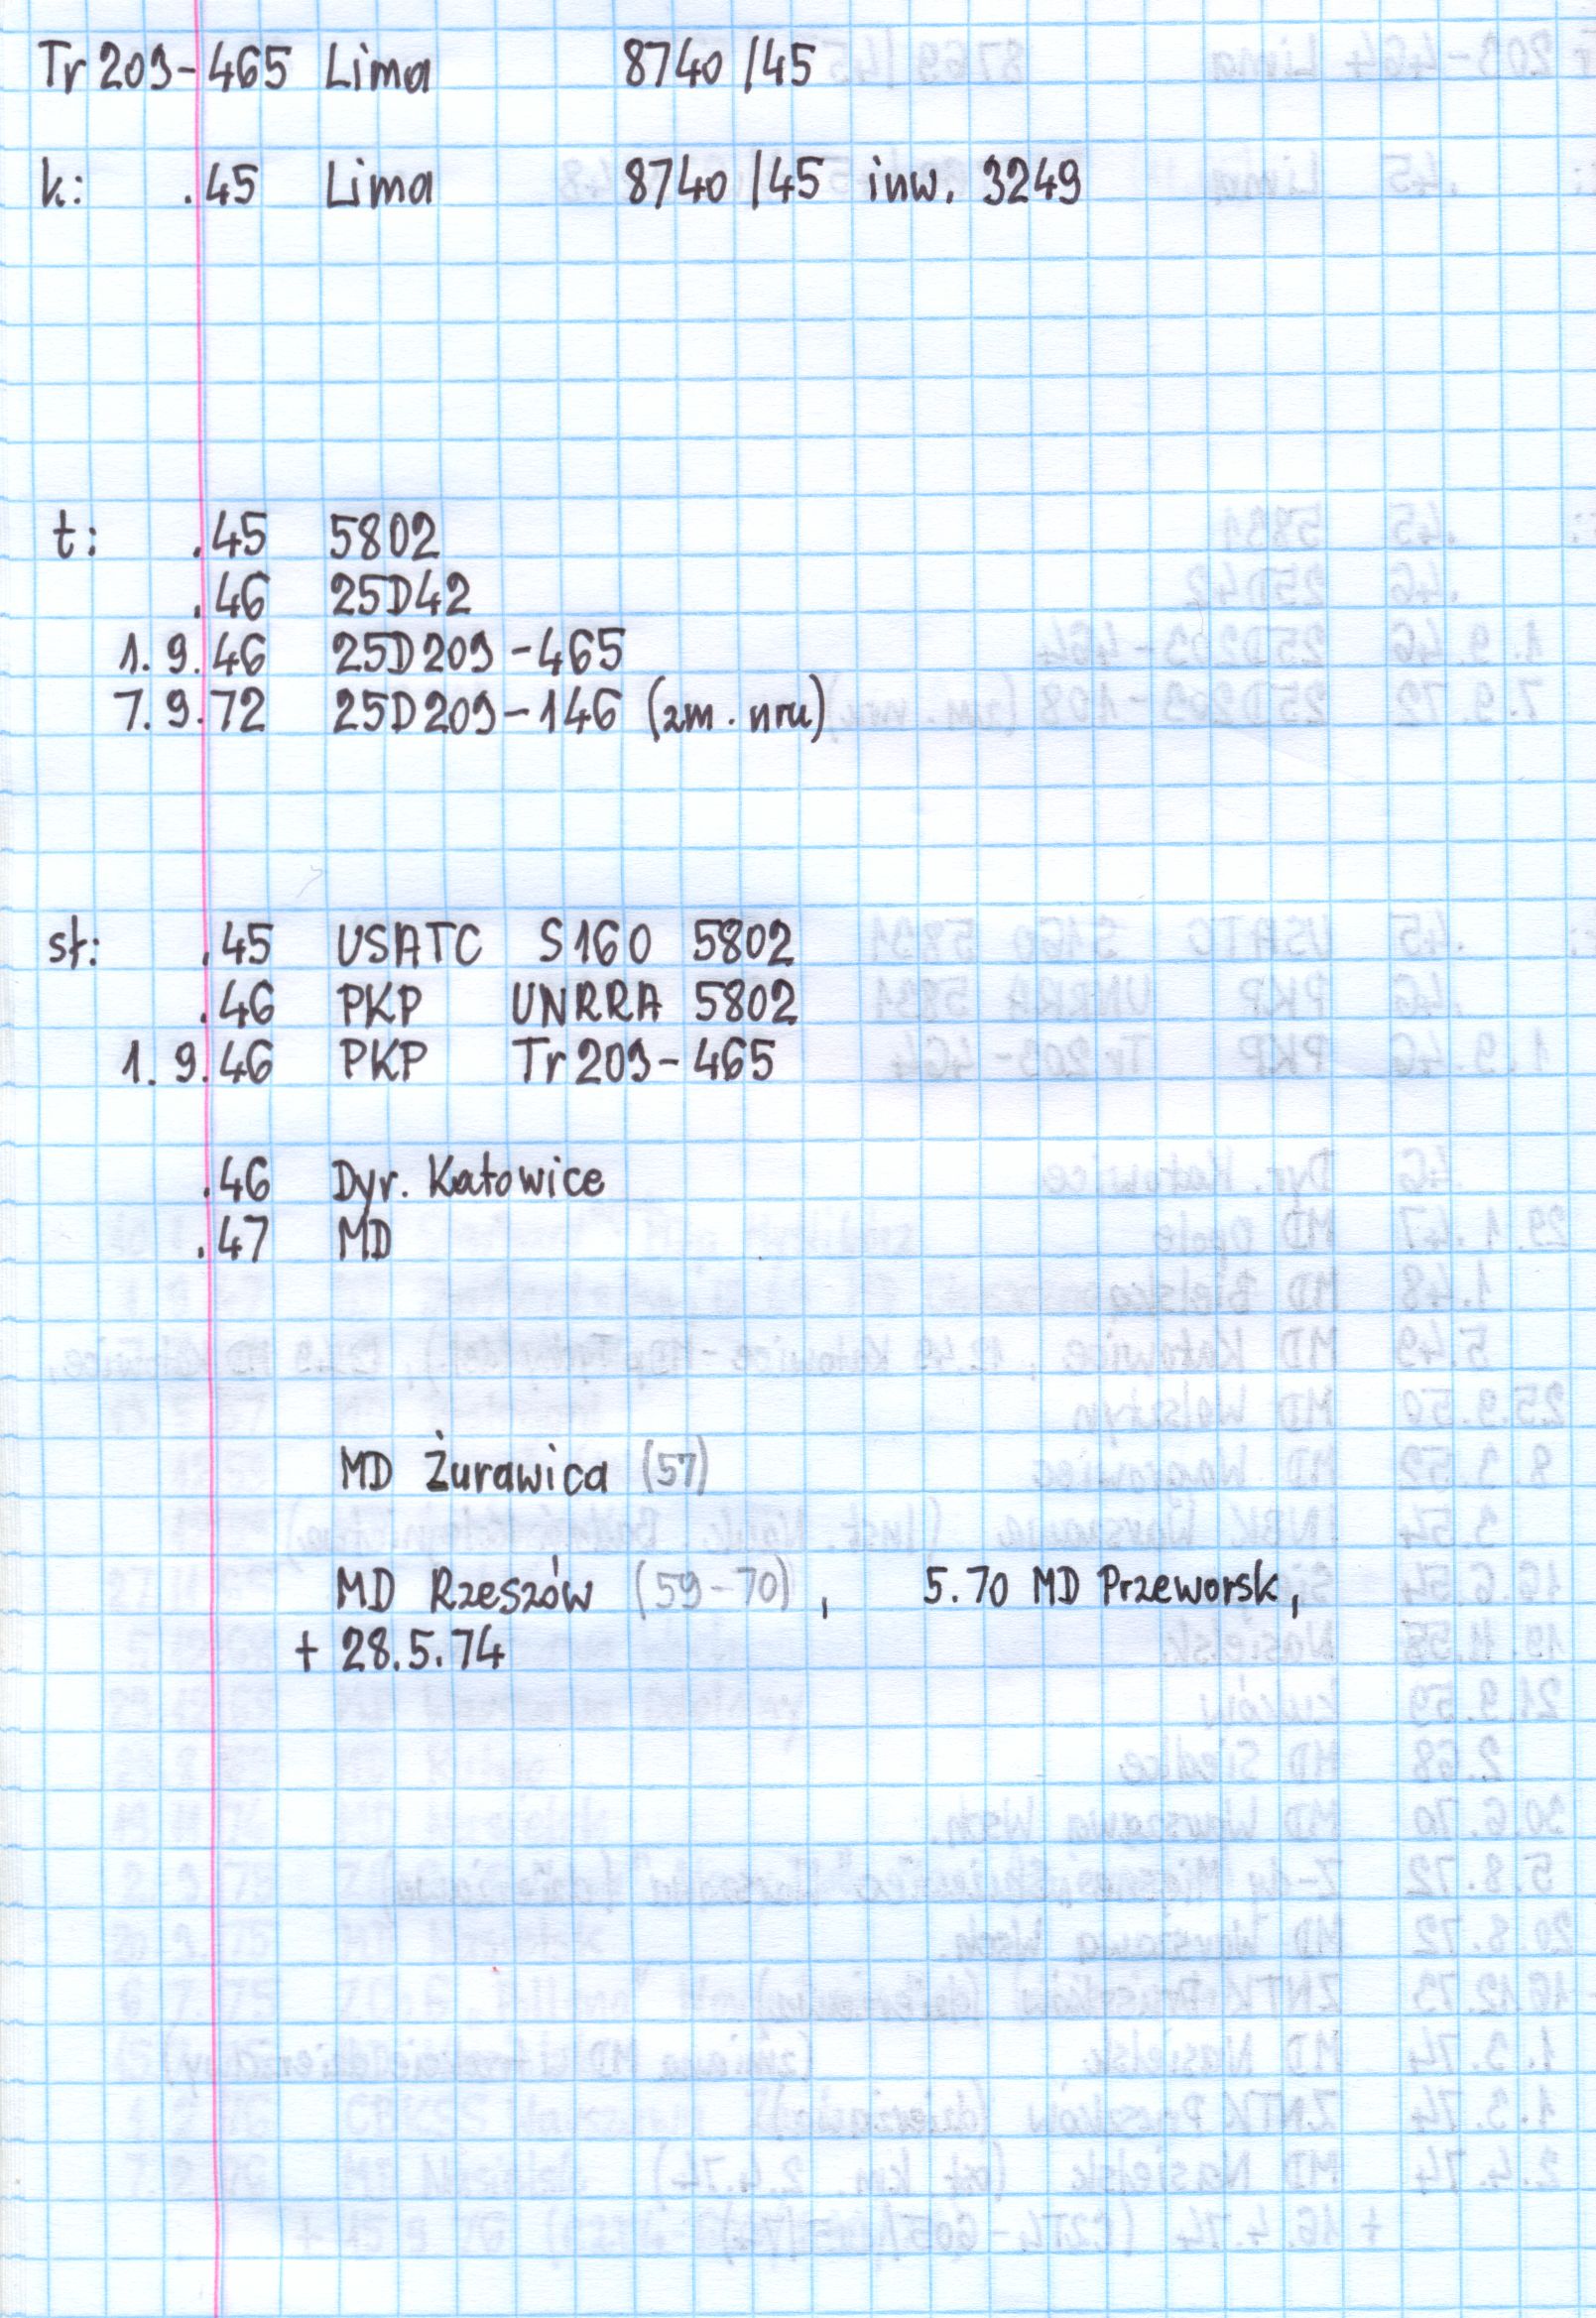 Tr 203-465 Lima 8740/45
k: .45 Lima 8740/45 inw. 3249
t: .45 5802
.46 25D42
1.9.46 25D203-465
7.9.72 25D203-146 (zm. nru)
sł: .45 USATC S160 5802
.46 PKP UNRRA 5802
1.9.46 PKP Tr 203-465
.46 Dyr. Katowice
.47 MD
MD Żurawica (57)
MD Rzeszów (59-70), 5.70 MD Przeworsk,
+ 28.5.74